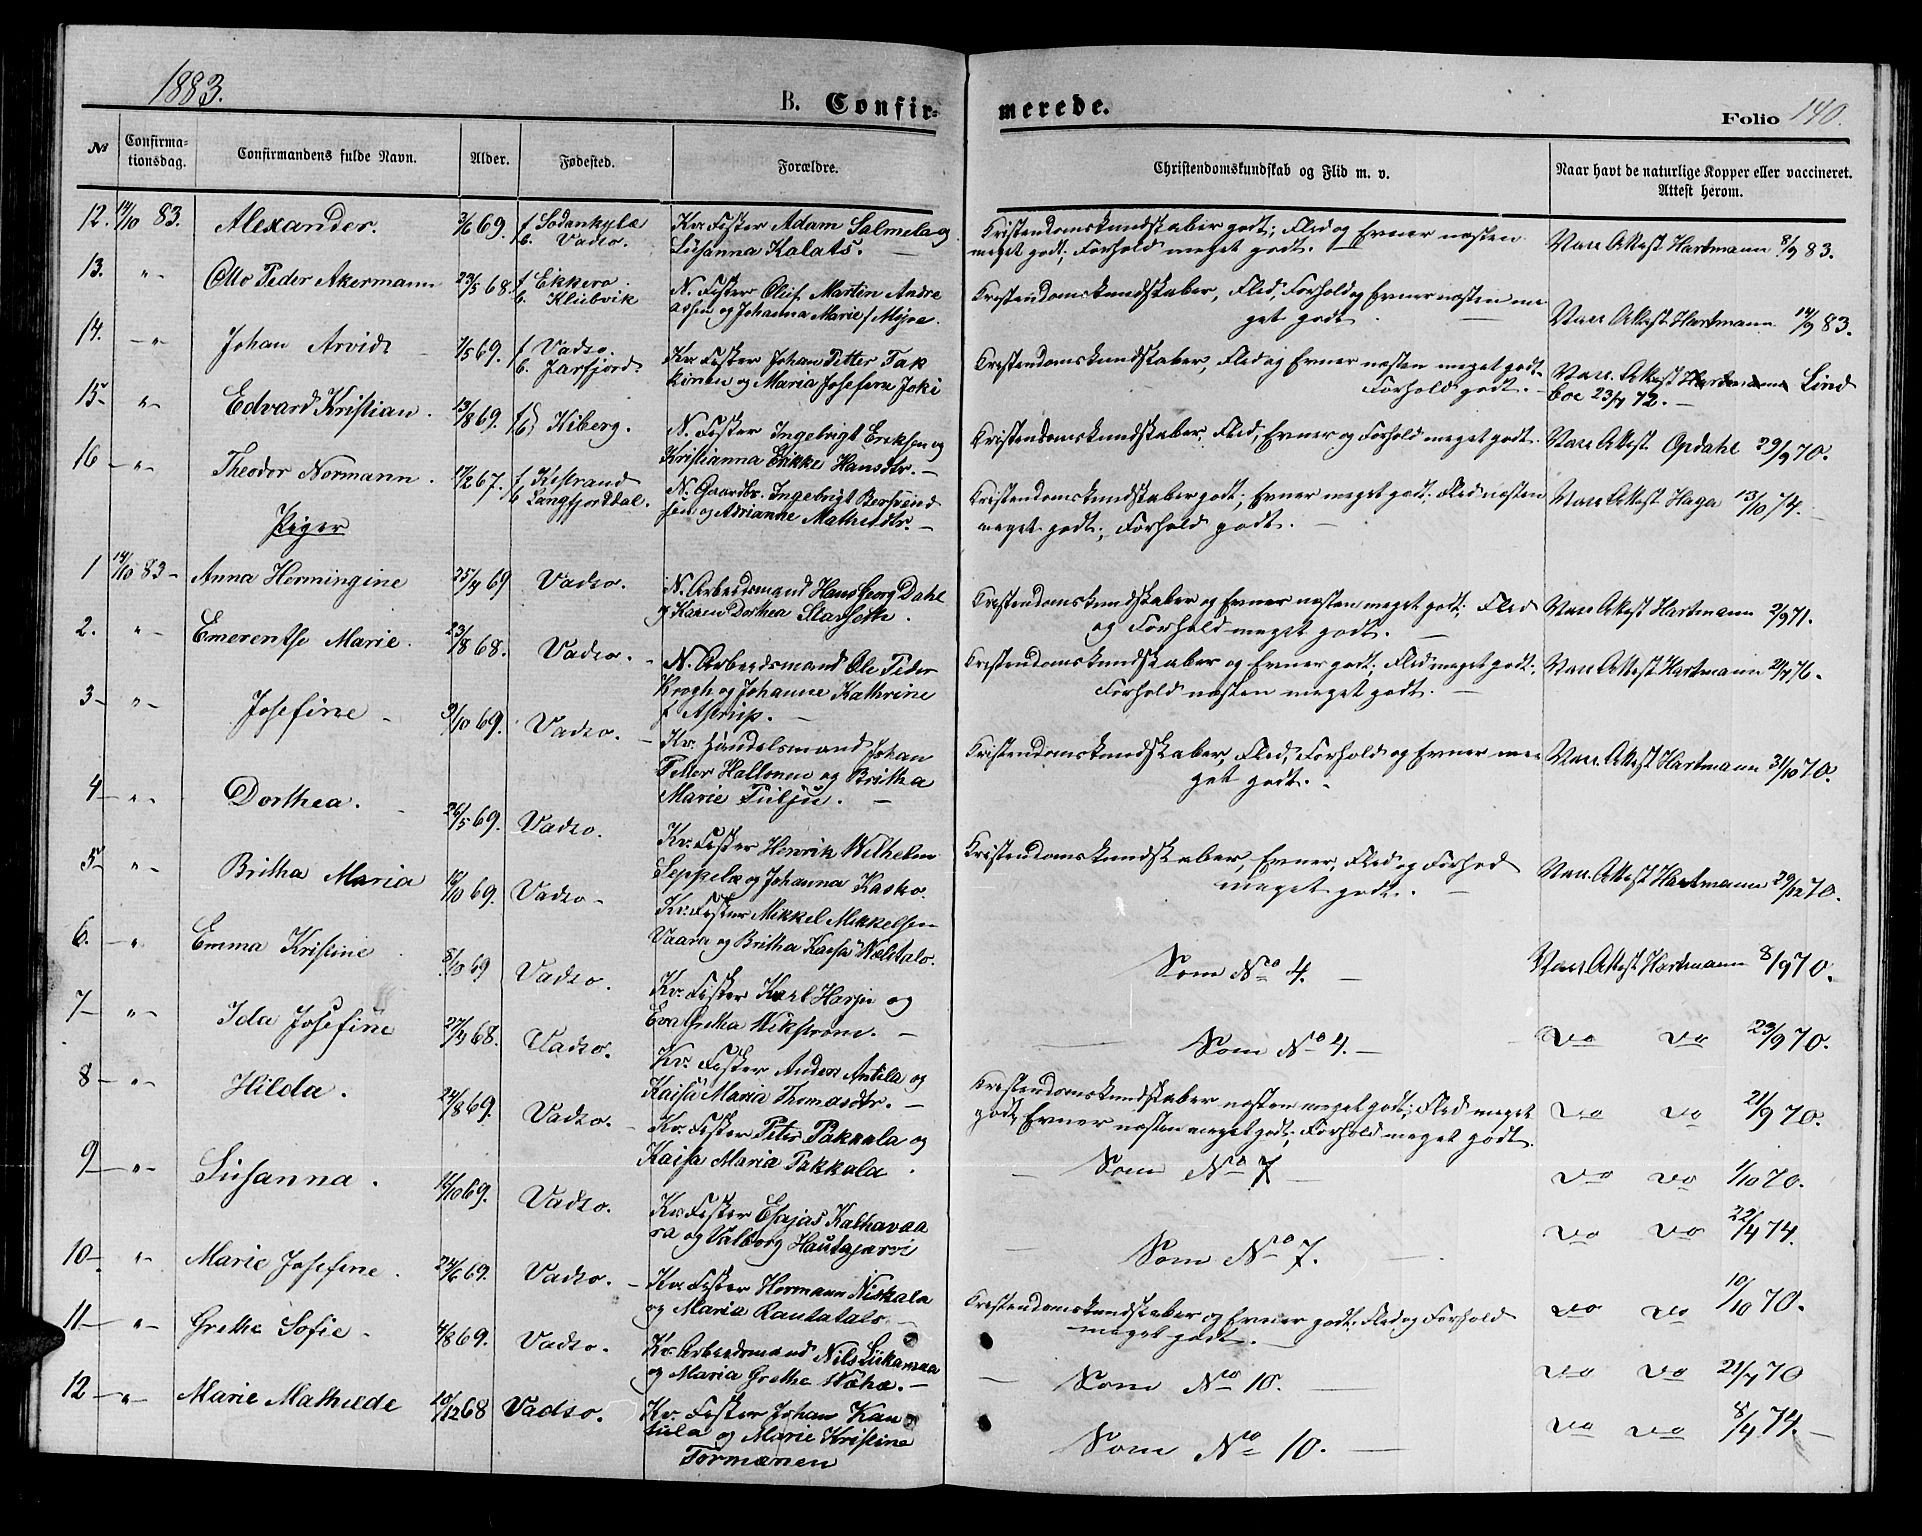 1883.
B. Confirmerede.
Folio 140.
No Confirmationsdag. Confirmandens fulde Navn. Alder. Fødested. Forældre. Christendomskundskab og Flid m. v. Naar havt de naturlige Kopper eller vaccineret. Attest herom.
12. 14/10 83. Alexander. 3/6 69. f Sodankylæ b. Vadsø. Kv. Fisker Adam Salmela og Susanna Kalats. Kristendomskundskaber godt; Flid og Evner næsten meget godt; Forhold meget godt. Vacc. Attest Hartmann 8/9 83.
13. " Otto Peder Akermann 23/5 68 f Ekkerø b. Kliebvik N. Fisker Oluf Martin Andreassen og Johanna Marie f Myre. Kristendomskundskaber, Flid, Forhold og Evner næsten meget godt. Vacc Attest Hartmann 14/9 83.
14. " Johan Arvid 7/5 69. f Vadsø b. Jarfjord. Kv. Fisker Johan Petter Takkinen og Maria Josefina Joki Kristendomskundskaber, Flid og Evner næsten meget godt. Forhold godt. Vacc. Attest Hartmann Lindboe 23/7 72.
15 " Edvard Kristian. 13/8 69. f b } Kiberg. N. Fisker Ingebrigt Eriksen og Kristianna Erikke Hansdtr. Kristendomskundskaber, Flid, Evner og Forhold meget godt. Vacc Attest Opdahl 29/9 70.
16 " Theodor Normann. 17/2 67. f Kistrand b Langfjorddal. N. Gaardbr. Ingebrigt Bersvendsen og Adrianne Mathisdtr. Kristendomskundskaber godt; Evner meget godt. Flid næsten meget godt; Forhold godt. Vacc Attest Haga 13/10 74.
Piger
1 14/10 83 Anna Hermingine 25/4 69 Vadsø. N. Arbeidsmand Hans Georg Dahl og Karen Dorthea Slarseth. Kristendomskundskaber og Evner næsten meget godt; Flid og Forhold meget godt. Vacc Attest Hartmann 2/9 71.
2. " Emerentse Marie. 23/8 68. Vadsø. N. Arbeidsmand Ole Peder Krogh og Johanne Kathrine f Astrup. Kristendomskundskaber og Evner godt; Flid meget godt; Forhold næsten meget godt. Vacc Attest Hartmann 21/7 76.
3 " Josefine 9/10 69. Vadsø. Kv. Handelsmand Johan Petter Hallonen og Britha Marie Pulju. Kristendomskundskaber, Flid, Forhold og Evner meget godt. Vacc Attest Hartmann 31/10 70.
4 " Dorthea. 26/5 69. Vadsø. Kv. Fisker Henrik Wilhelm Seppela og Johanna Kasko. Kristendomskundskaber, Evner, Flid og Forhod meget godt. Vacc. Attest Hartmann 29/12 70.
5 " Britha Maria 16/10 69. Vadsø Kv. Fisker Mikkel Mikkelsen Vaara og Britha Kaisa Weltalo. Som No 4. Vacc Attest Hartmann 8/9 70.
6. " Emma Kristine 8/10 69 Vadsø. Kv. Fisker Karl Harju og Eva Gretha Wikstrøm. Som No 4. do do 23/9 70.
7 " Ida Josefine 27/9 68. Vadsø. Kv. Fisker Anders Antila og Kaisa Maria Thomasdtr. Kristendomskundskaber næsten meget godt; Flid meget godt, Evner næsten meget godt; Forhold meget godt. do do 21/9 70.
8 " Hilda. 24/8 69. Vadsø. Kv. Fisker Peter Pakkala og Kaisa Maria Pakkala. Som No 7 do do 1/10 70.
9 " Susanna. 16/10 69. Vadsø. Kv. Fisker Esajas Kalhavaara og Valborg Hautajærvi Som No 7. do do 22/7 74.
10 " Marie Josefine. 24/6 69. Vadsø. Kv. Fisker Hermann Niskala og Maria Rautatalo. Kristendomskundskaber og Evner godt; Flid og Forhold meget godt. do do 10/10 70.
11 " Grethe Sofie 4/8 69. Vadsø. Kv. Arbeidsmand Nils Siikavaa og Maria Grethe Wæhæ. Som No 10. do do 21/7 70
12 " Marie Mathilde 10/12 68 Vadsø. Kv. Fisker Johan Kantula og Marie Kristine Tormænen Som No 10. do do 8/7 74.